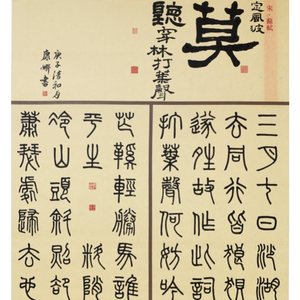 宋 蘇軾
定風波
莫
聽穿林打葉聲
庚子清和月
三月七日沙湖
去同行皆狼狽
遂晴故作此詞
打葉聲何妨吟
芒鞋輕勝馬誰
平生 料峭
冷山頭斜照卻
蕭瑟處歸去也